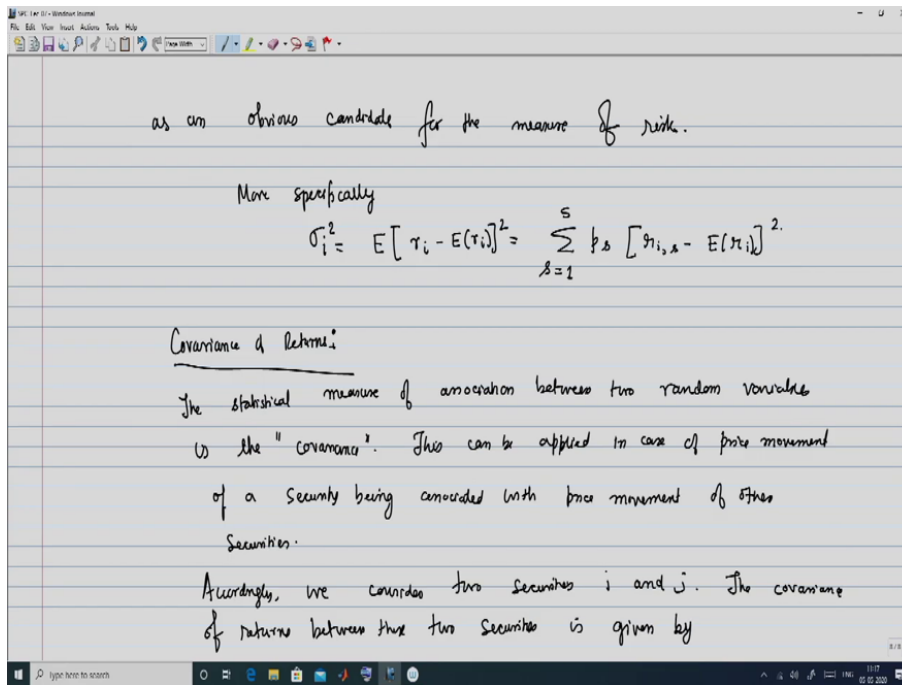 SPC Lec 07 - Windows Journal
File Edit View Insert Actions Tools Help
Page Width
as an obvious candidate for the measure of risk.
More specifically
σ_i² = E[r_i - E(r_i)]² = Σ_{s=1}^{S} p_s [r_{i,s} - E(r_i)]².
Covariance of Returns:
The statistical measure of association between two random variables
is the "covariance". This can be applied in case of price movement
of a security being associated with price movement of other
securities.
Accordingly, we consider two securities i and j. The covariance
of returns between these two securities is given by
8/8
Type here to search
11:17
ENG
05 05 2020